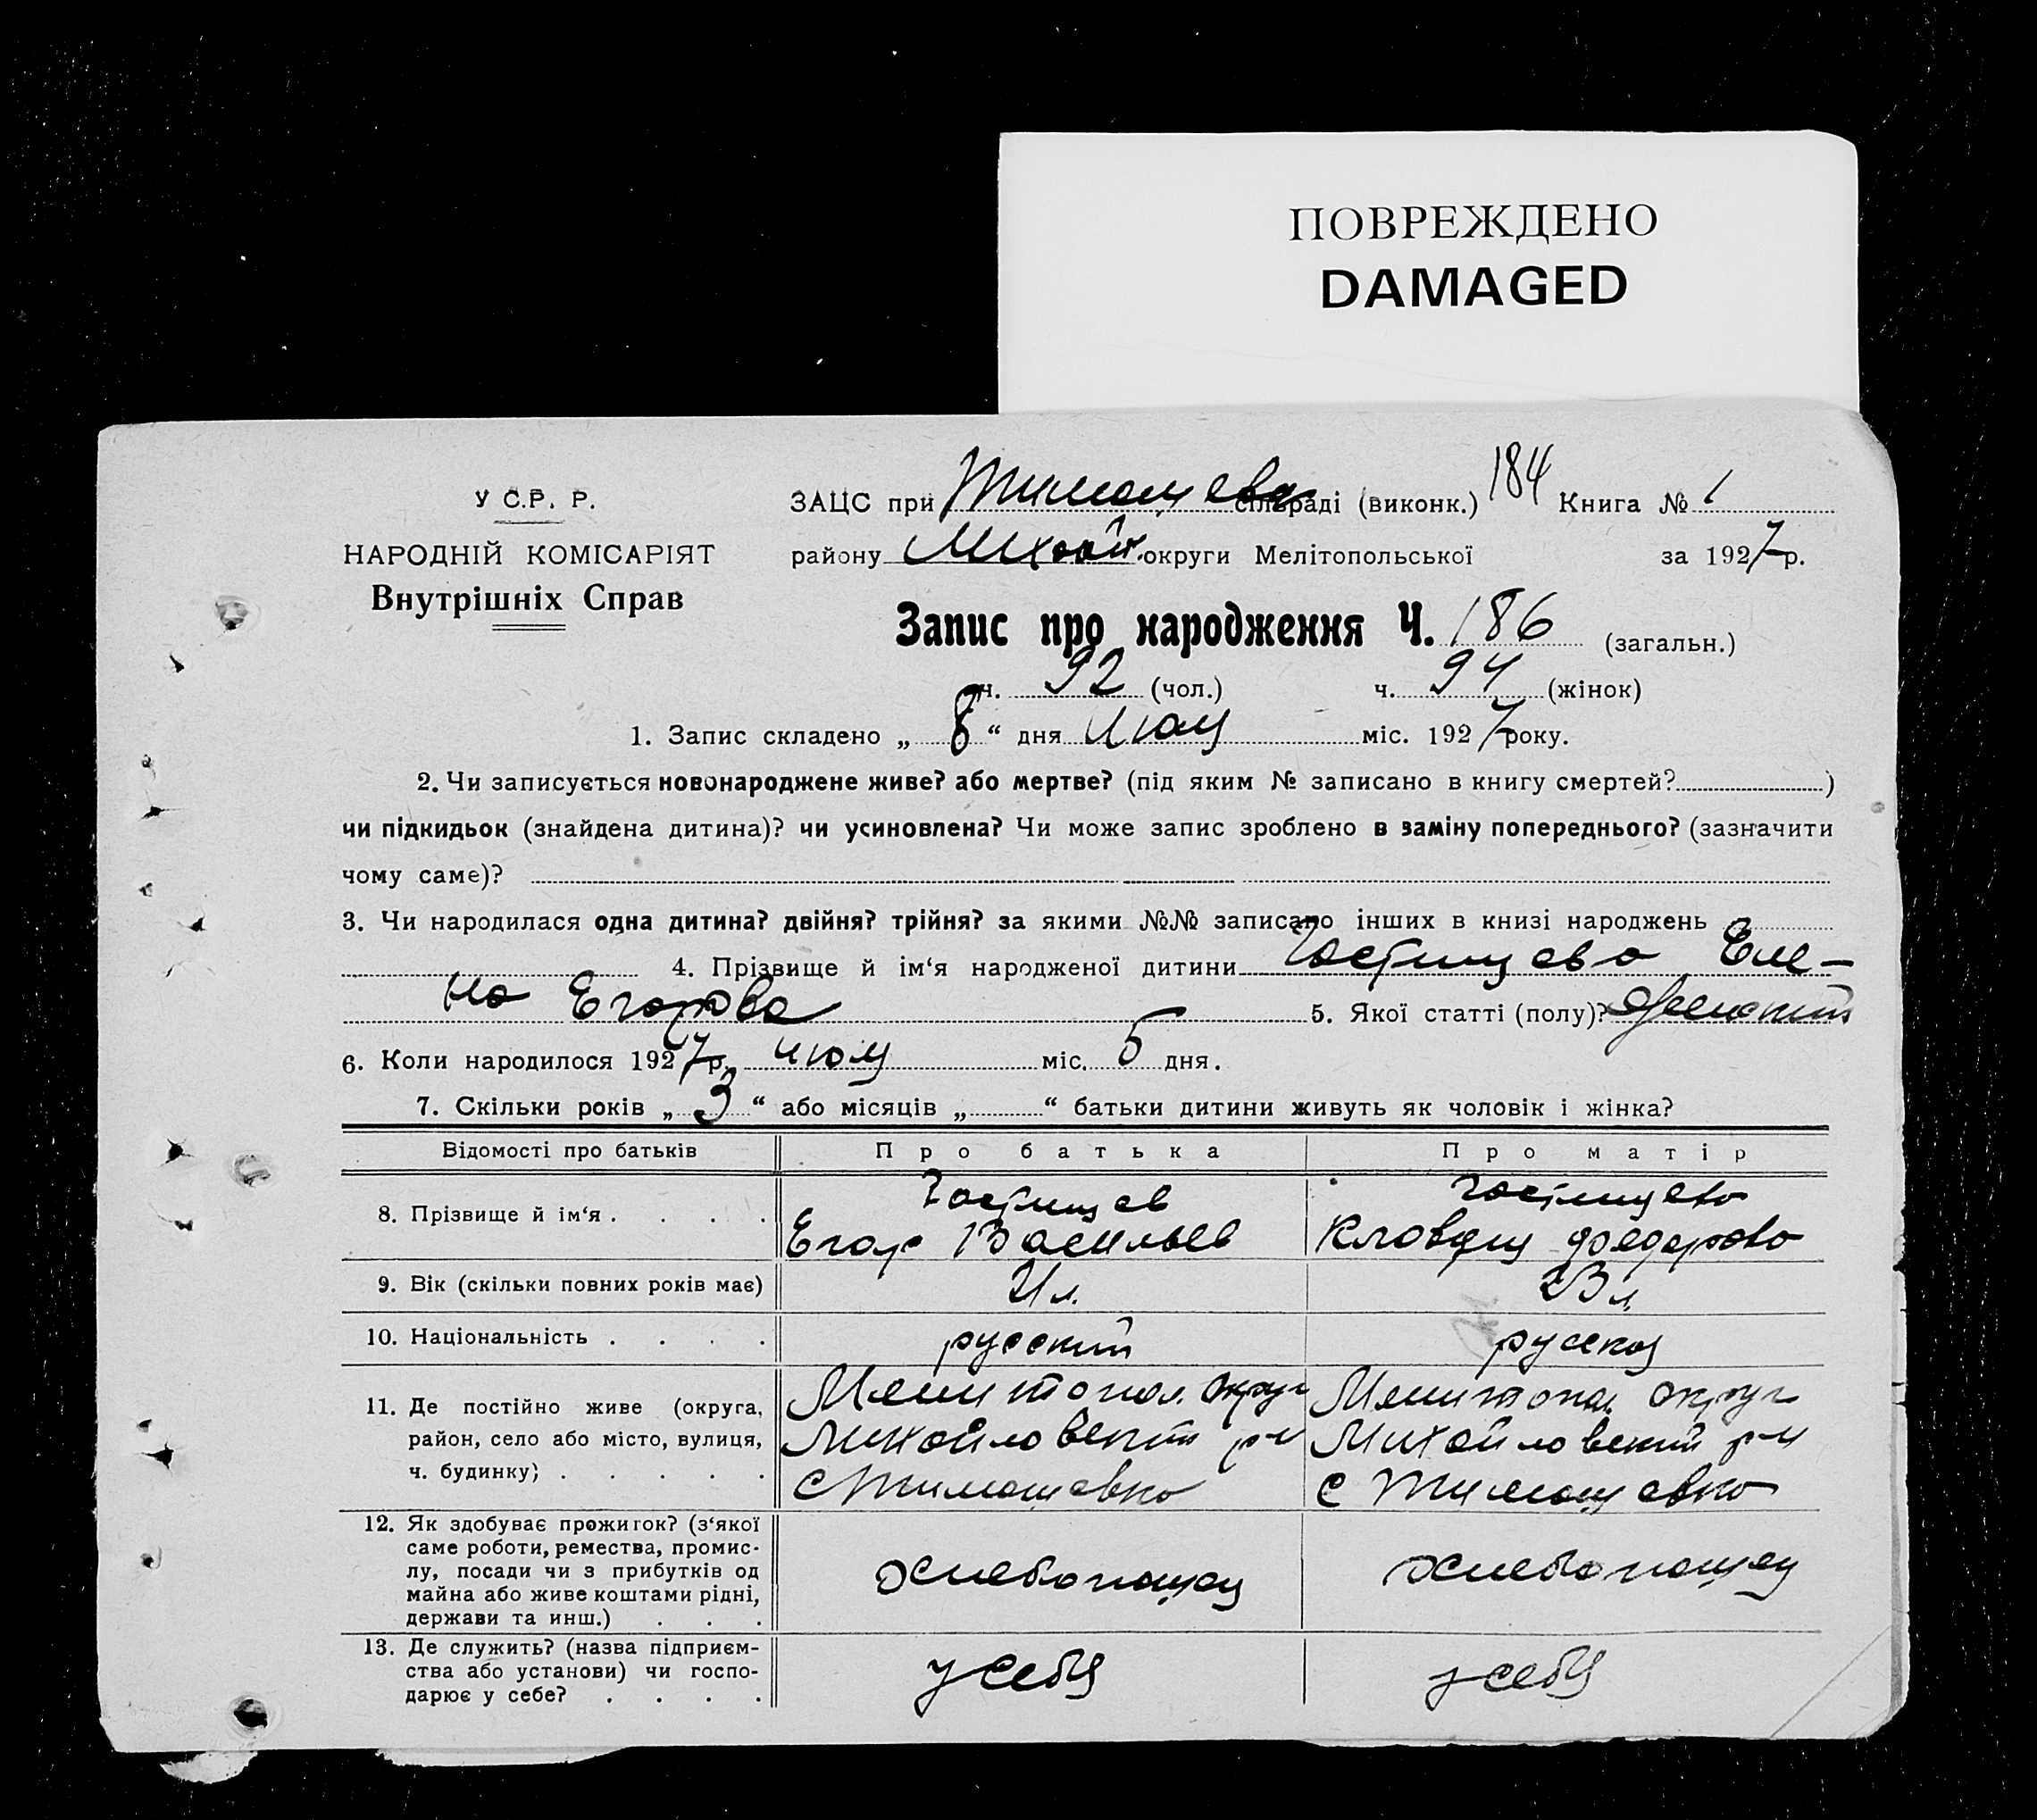 ПОВРЕЖДЕНО
DAMAGED
У С.Р. Р.
НАРОДНІЙ КОМІСАРІЯТ
Внутрішніх Справ
ЗАЦС при Тимошев сільраді (виконк.) 184 Книга № 1
району Михайл. округи Мелітопольської за 1927 р.
Запис про народження Ч. 186 (загальн.)
ч. 92 (чол.) ч. 94 (жінок)
1. Запис складено „ 8 “ дня июля міс. 1927 року.
2. Чи записується новонароджене живе? або мертве? (під яким № записано в книгу смертей? )
чи підкидьок (знайдена дитина)? чи усиновлена? Чи може запис зроблено в заміну попереднього? (зазначити
чому саме)?
3. Чи народилася одна дитина? двійня? трійня? за якими №№ записано інших в книзі народжень
4. Прізвище й ім‘я народженої дитини Гостищева Еле-
на Егорова 5. Якої статті (полу)? женский
6. Коли народилося 1927 р. июля міс. 5 дня.
7. Скільки років „ 3 “ або місяців „ “ батьки дитини живуть як чоловік і жінка?
Відомості про батьків Про батька Про матір
8. Прізвище й ім‘я . . . . Гостищев Гостищева
Егор Васильев Клавдия Федорова
9. Вік (скільки повних років має) 21 л. 23 л.
10. Національність . . . . русский русская
11. Де постійно живе (округа, Мелитопол. округ Мелитопол. округ
район, село або місто, вулиця, Михайловский р-н Михайловский р-н
ч. будинку) . . . . . с Тимошевка с Тимошевка
12. Як здобуває прожиток? (з‘якої
саме роботи, ремества, промис-
лу, посади чи з прибутків од
майна або живе коштами рідні,
держави та инш.) . . . хлебопашец хлебопашец
13. Де служить? (назва підприєм-
ства або установи) чи госпо-
дарює у себе? . . . . у себя у себя